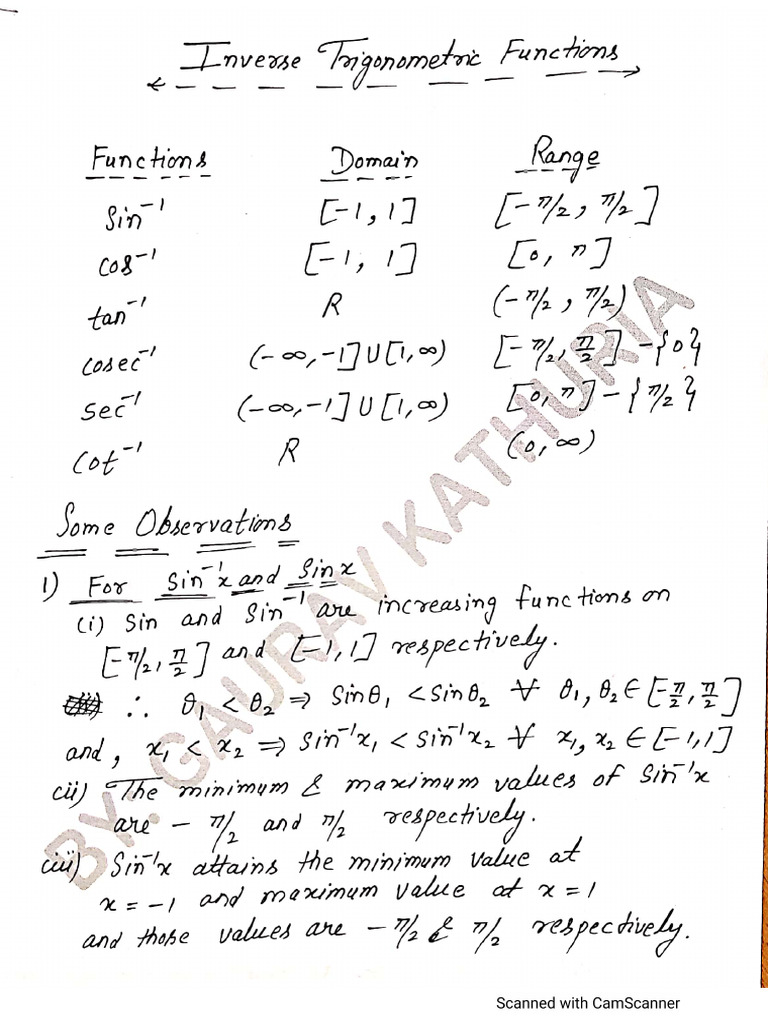 Inverse Trigonometric Functions
Functions Domain Range
Sin⁻¹ [-1, 1] [-π/2, π/2]
cos⁻¹ [-1, 1] [0, π]
tan⁻¹ R (-π/2, π/2)
cosec⁻¹ (-∞, -1] U [1, ∞) [-π/2, π/2] - {0}
sec⁻¹ (-∞, -1] U [1, ∞) [0, π] - {π/2}
cot⁻¹ R (0, ∞)
Some Observations
1) For Sin⁻¹x and Sinx
(i) Sin and Sin⁻¹ are increasing functions on
[-π/2, π/2] and [-1, 1] respectively.
∴ θ₁ < θ₂ ⇒ Sinθ₁ < Sinθ₂ ∀ θ₁, θ₂ ∈ [-π/2, π/2]
and, x₁ < x₂ ⇒ Sin⁻¹x₁ < Sin⁻¹x₂ ∀ x₁, x₂ ∈ [-1, 1]
(ii) The minimum & maximum values of Sin⁻¹x
are - π/2 and π/2 respectively.
(iii) Sin⁻¹x attains the minimum value at
x = -1 and maximum value at x = 1
and those values are - π/2 & π/2 respectively.
BY: GAURAV KATHURIA
Scanned with CamScanner